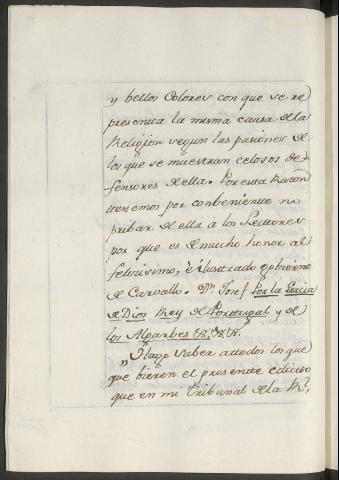 y bellos Colores con que se re
presenta la misma causa de la
Religion segun las pasiones de
los que se muestran celosos de-
fensores de ella. Por esta Razon
tenemos por conbeniente no
pribar de ella à los Lectores
por que es de mucho honor al
felicisimo, è ilustrado gobierno
de Carvallo. Dn. Josef Por la Gracia
de Dios Rey de Portugal y de
los Algarbes &. &. &.
"Hago saber attodos los que
que bieren el presente edicto
que en mi tribunal de la Rl.